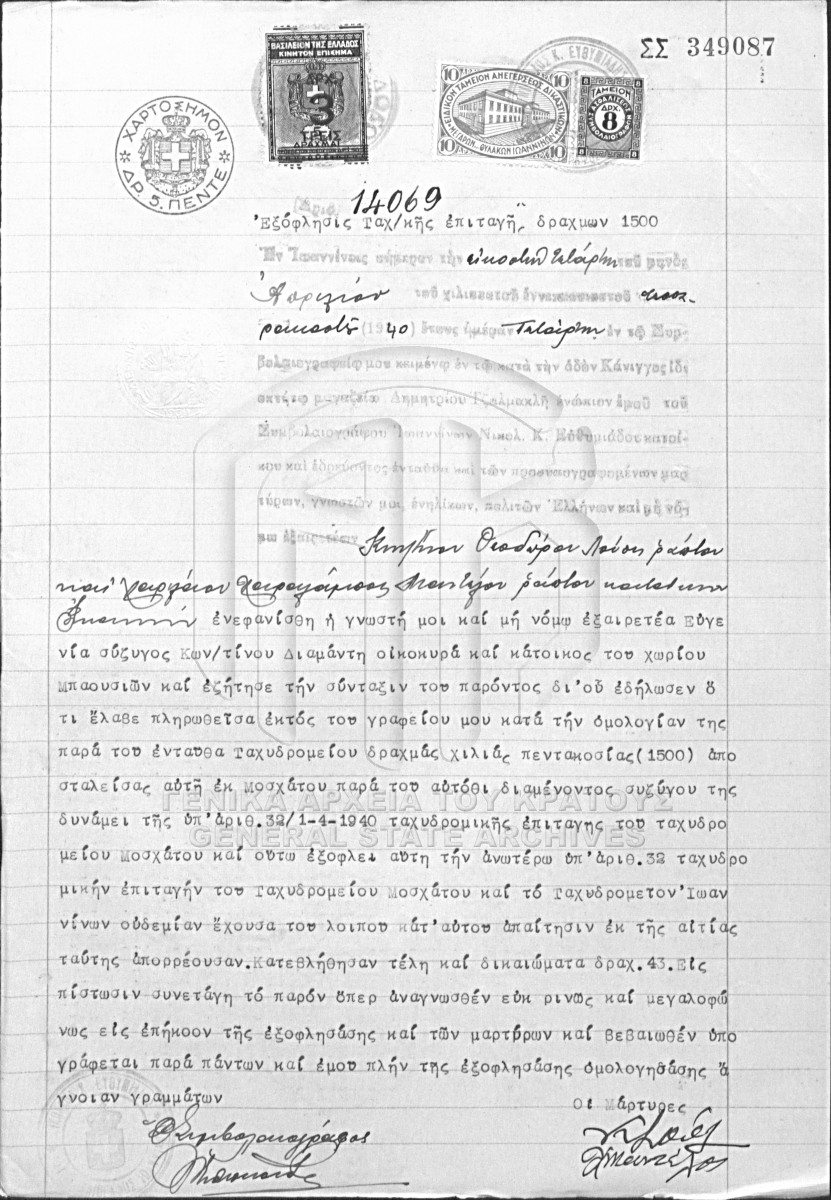 ΣΣ 349087
ΒΑΣΙΛΕΙΟΝ ΤΗΣ ΕΛΛΑΔΟΣ
ΚΙΝΗΤΟΝ ΕΠΙΣΗΜΑ
ΔΡΧ
3
ΤΡΕΙΣ
ΔΡΑΧΜΑΙ
10 10
ΕΙΔΙΚΟΝ ΤΑΜΕΙΟΝ ΑΝΕΓΕΡΣΕΩΣ ΔΙΚΑΣΤΙΚΟΥ
ΜΕΓΑΡΟΥ-ΦΥΛΑΚΩΝ ΙΩΑΝΝΙΝΩΝ
10 10
ΤΑΜΕΙΟΝ
ΔΡΧ.
8
ΧΑΡΤΟΣΗΜΟΝ
ΔΡ. 5. ΠΕΝΤΕ
14069
Ἐξόφλησις Ταχ/κῆς ἐπιταγῆς δραχμων 1500
Ἐν Ἰωαννίνοις σήμερον τὴν εἰκοστὴν τετάρτην τοῦ μηνὸς
Ἀπριλίου τοῦ χιλιοστοῦ ἐννεακοσιοστοῦ τεσσα-
ρακοστοῦ (1940) ἔτους ἡμέραν Τετάρτην ἐν τῷ Συμ-
βολαιογραφείῳ μου κειμένῳ ἐν τῷ κατὰ τὴν ὁδὸν Κάνιγγος ἰδι
οκτήτῳ μαγαζείῳ Δημητρίου ἐνώπιον ἐμοῦ τοῦ
Συμβολαιογράφου Ἰωαννίνων Νικολ. Κ. Εὐθυμιάδου κατοί-
κου καὶ ἑδρεύοντος ἐνταῦθα καὶ τῶν προσυπογραφομένων μαρ
τύρων, γνωστῶν μοι, ἐνηλίκων, πολιτῶν Ἑλλήνων καὶ μὴ νό-
μῳ ἐξαιρετέων Θεοδώρου ράπτου
καὶ ράπτου κατοίκων
ἐνεφανίσθη ἡ γνωστή μοι καί μή νόμῳ ἐξαιρετέα Εὐγε
νία σύζυγος Κων/τίνου Διαμάντη οἰκοκυρά καί κάτοικος του χωρίου
Μπαουσιῶν καί ἐζήτησε τήν σύνταξιν του παρόντος δι'οὗ ἐδήλωσεν ὅ
τι ἔλαβε πληρωθεῖσα ἐκτός του γραφείου μου κατά τήν ὁμολογίαν της
παρά του ἐνταυθα Ταχυδρομείου δραχμάς χιλιάς πεντακοσίας(1500) ἀπο
σταλείσας αὐτῇ ἐκ Μοσχάτου παρά του αὐτόθι διαμένοντος συζύγου της
δυνάμει τῆς ὑπ'ἀριθ.32/1-4-1940 ταχυδρομικῆς ἐπιταγης του ταχυδρο
μείου Μοσχάτου καί οὕτω ἐξοφλει αὕτη τήν ἀνωτέρω ὑπ'ἀριθ.32 ταχυδρο
μικήν ἐπιταγήν του Ταχυδρομείου Μοσχάτου καί τό Ταχυδρομεῖον Ἰωαν
νίνων οὐδεμίαν ἔχουσα του λοιπου κατ'αὐτου ἀπαίτησιν ἐκ τῆς αἰτίας
ταύτης ἀπορρέουσαν.Κατεβλήθησαν τέλη καί δικαιώματα δραχ.43.Εἰς
πίστωσιν συνετάγη τό παρόν ὅπερ ἀναγνωσθέν εὐκ ρινῶς καί μεγαλοφώ
νως εἰς ἐπήκοον τῆς ἐξοφλησάσης καί τῶν μαρτύρων καί βεβαιωθέν ὑπο
γράφεται παρά πάντων καί ἐμου πλήν τῆς ἐξοφλησάσης ὁμολογησάσης ἄ
γνοιαν γραμμάτων
Οἱ Μάρτυρες
Ὁ Συμβολαιογράφος
ΓΕΝΙΚΑ ΑΡΧΕΙΑ ΤΟΥ ΚΡΑΤΟΥΣ
GENERAL STATE ARCHIVES